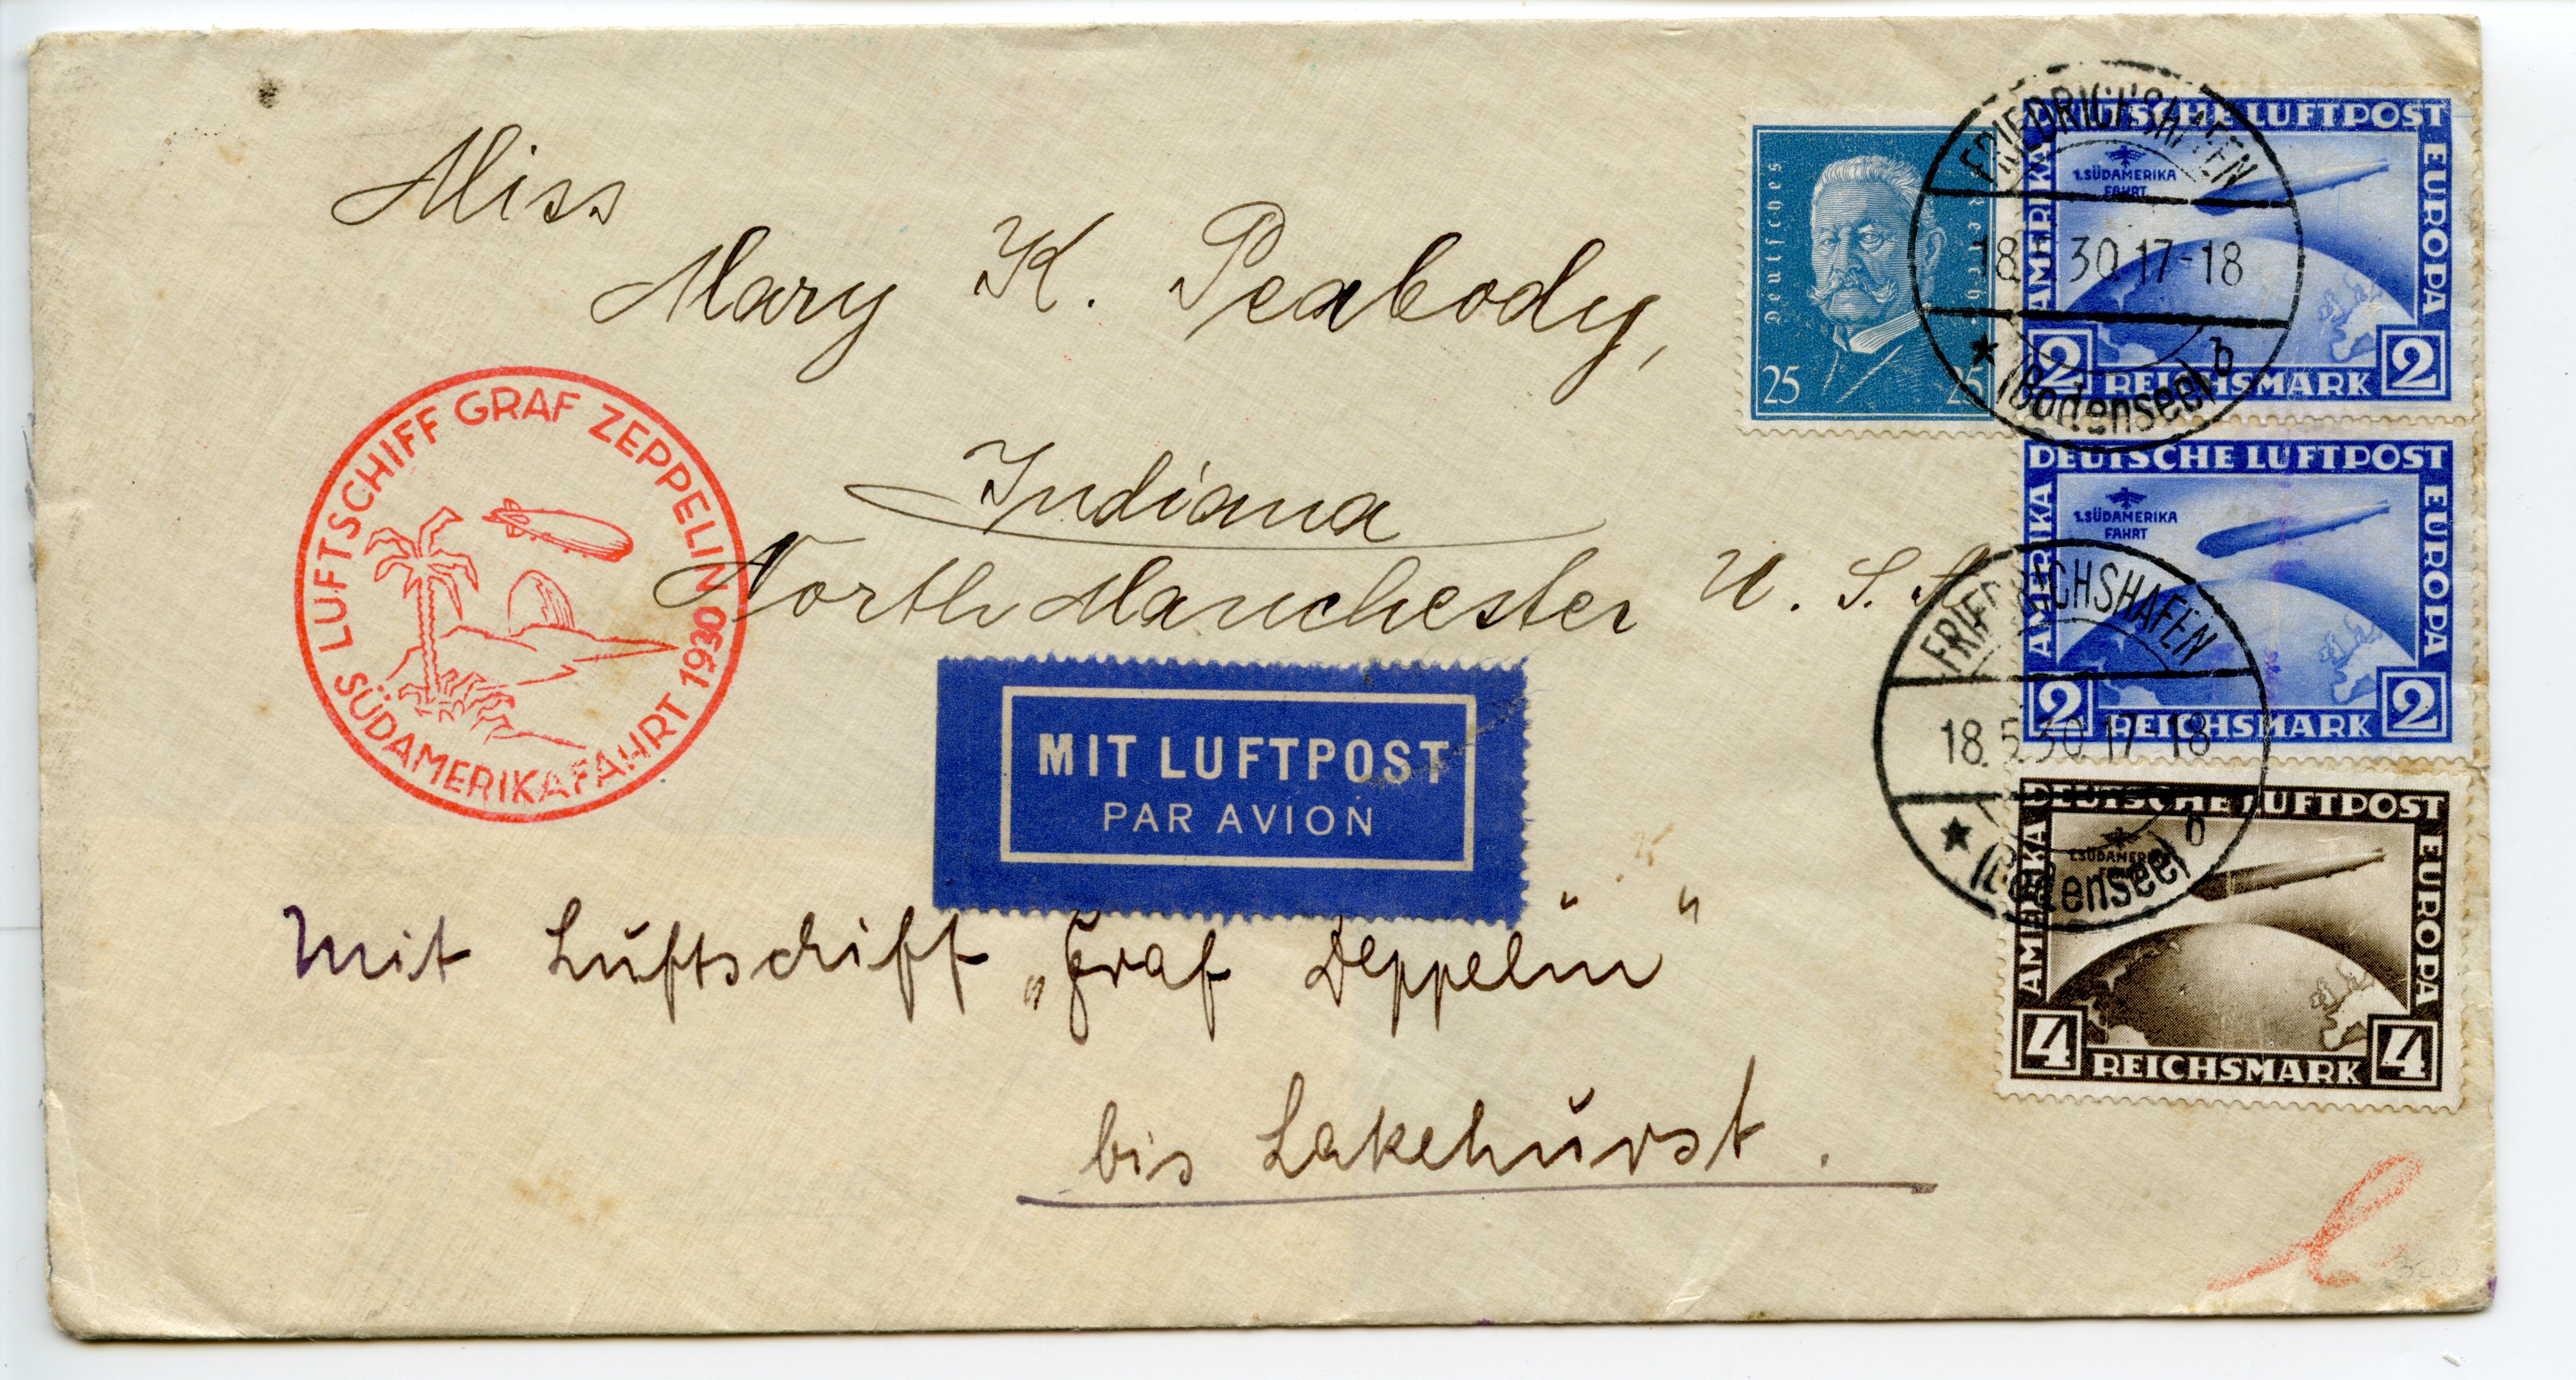 Miss
Mary K. Peabody,
Indiana
North Manchester U. S. A
LUFTSCHIFF GRAF ZEPPELIN
SÜDAMERIKAFAHRT 1930
MIT LUFTPOST
PAR AVION
Mit Luftschiff „Graf Zeppelin"
bis Lakehurst.
Deutsches Reich
25 25
DEUTSCHE LUFTPOST
AMERIKA
EUROPA
1.SÜDAMERIKA
FAHRT
2 REICHSMARK 2
FRIEDRICHSHAFEN
18. 5. 30. 17-18
(Bodensee) b
DEUTSCHE LUFTPOST
AMERIKA
EUROPA
1.SÜDAMERIKA
FAHRT
2 REICHSMARK 2
FRIEDRICHSHAFEN
18. 5. 30. 17-18
(Bodensee) b
DEUTSCHE LUFTPOST
AMERIKA
EUROPA
1.SÜDAMERIKA
FAHRT
4 REICHSMARK 4